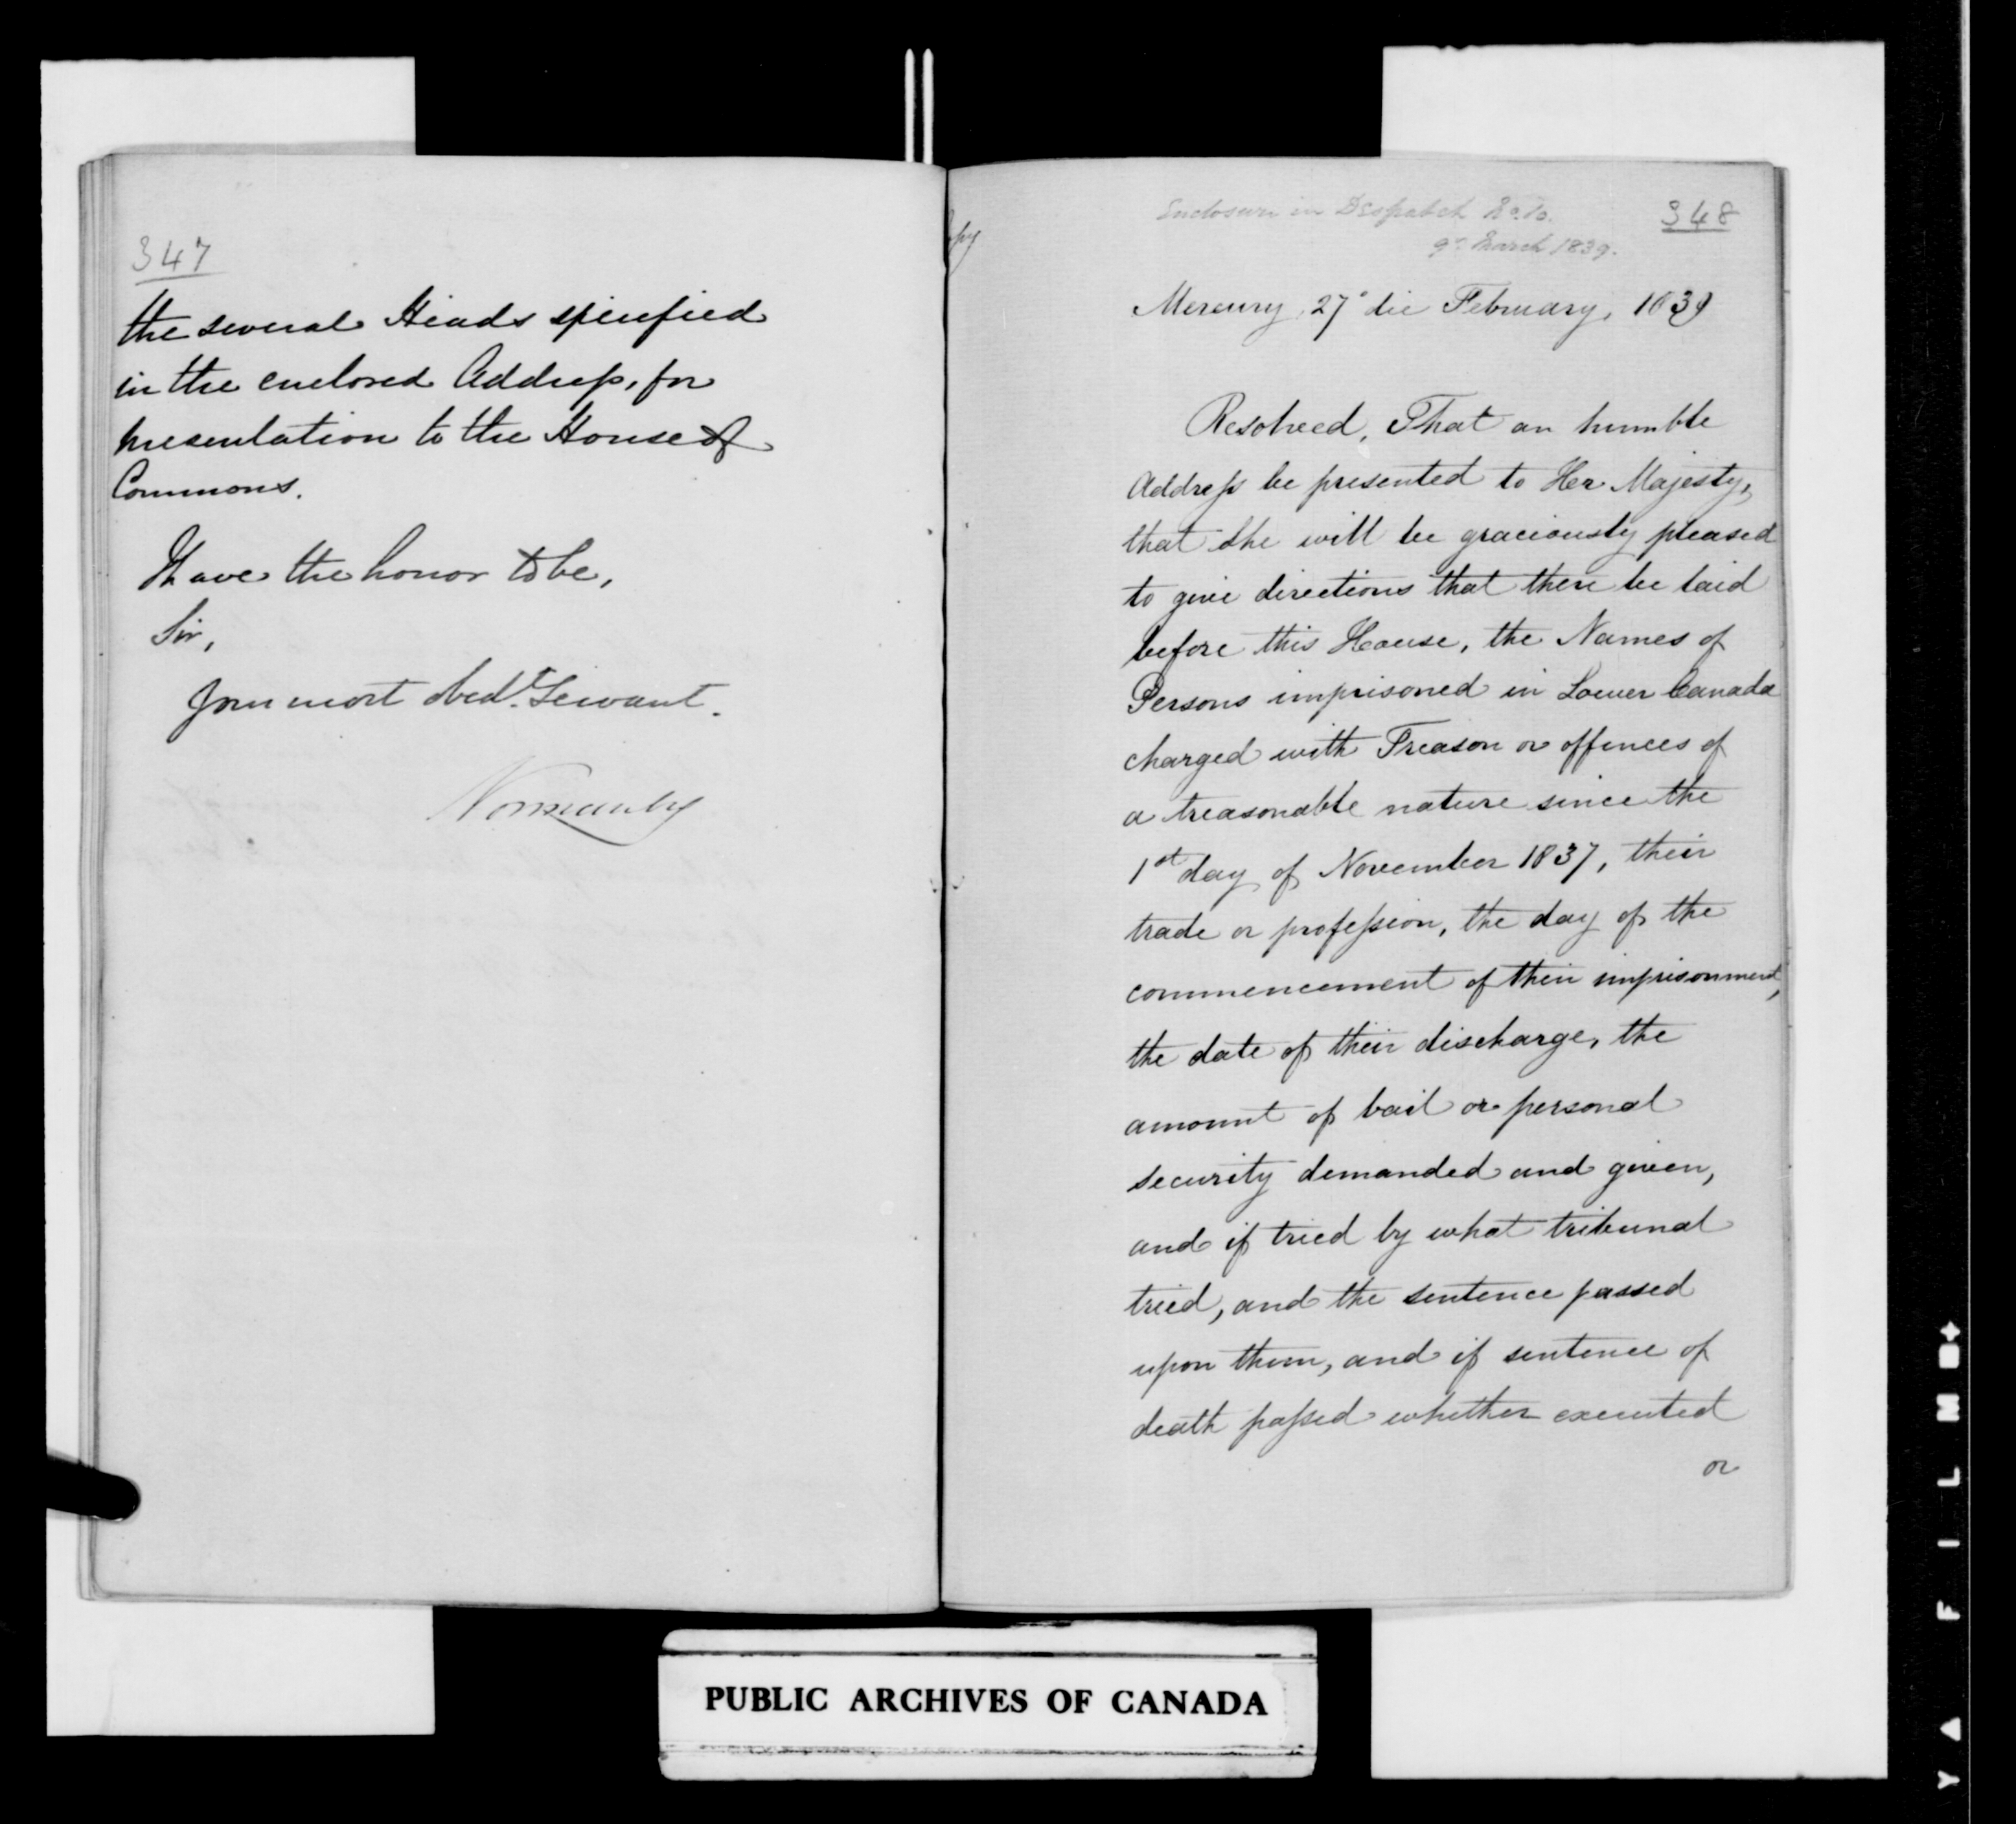 347
the several Heads specified
in the enclosed Address, for
presentation to the House of
Commons.
I have the honor to be,
Sir,
Your most obed.t Servant.
Normanby
Enclosure in Despatch No. 10.
9th March 1839.
348
Mercury, 27° die February, 1839
Resolved, That an humble
Address be presented to Her Majesty,
that She will be graciously pleased
to give directions that there be laid
before this House, the Names of
Persons imprisoned in Lower Canada
charged with Treason or offences of
a treasonable nature since the
1st day of November 1837, their
trade or profession, the day of the
commencement of their imprisonment,
the date of their discharge, the
amount of bail or personal
security demanded and given,
and if tried by what tribunal
tried, and the sentence passed
upon them, and if sentence of
death passed whether executed
or
PUBLIC ARCHIVES OF CANADA